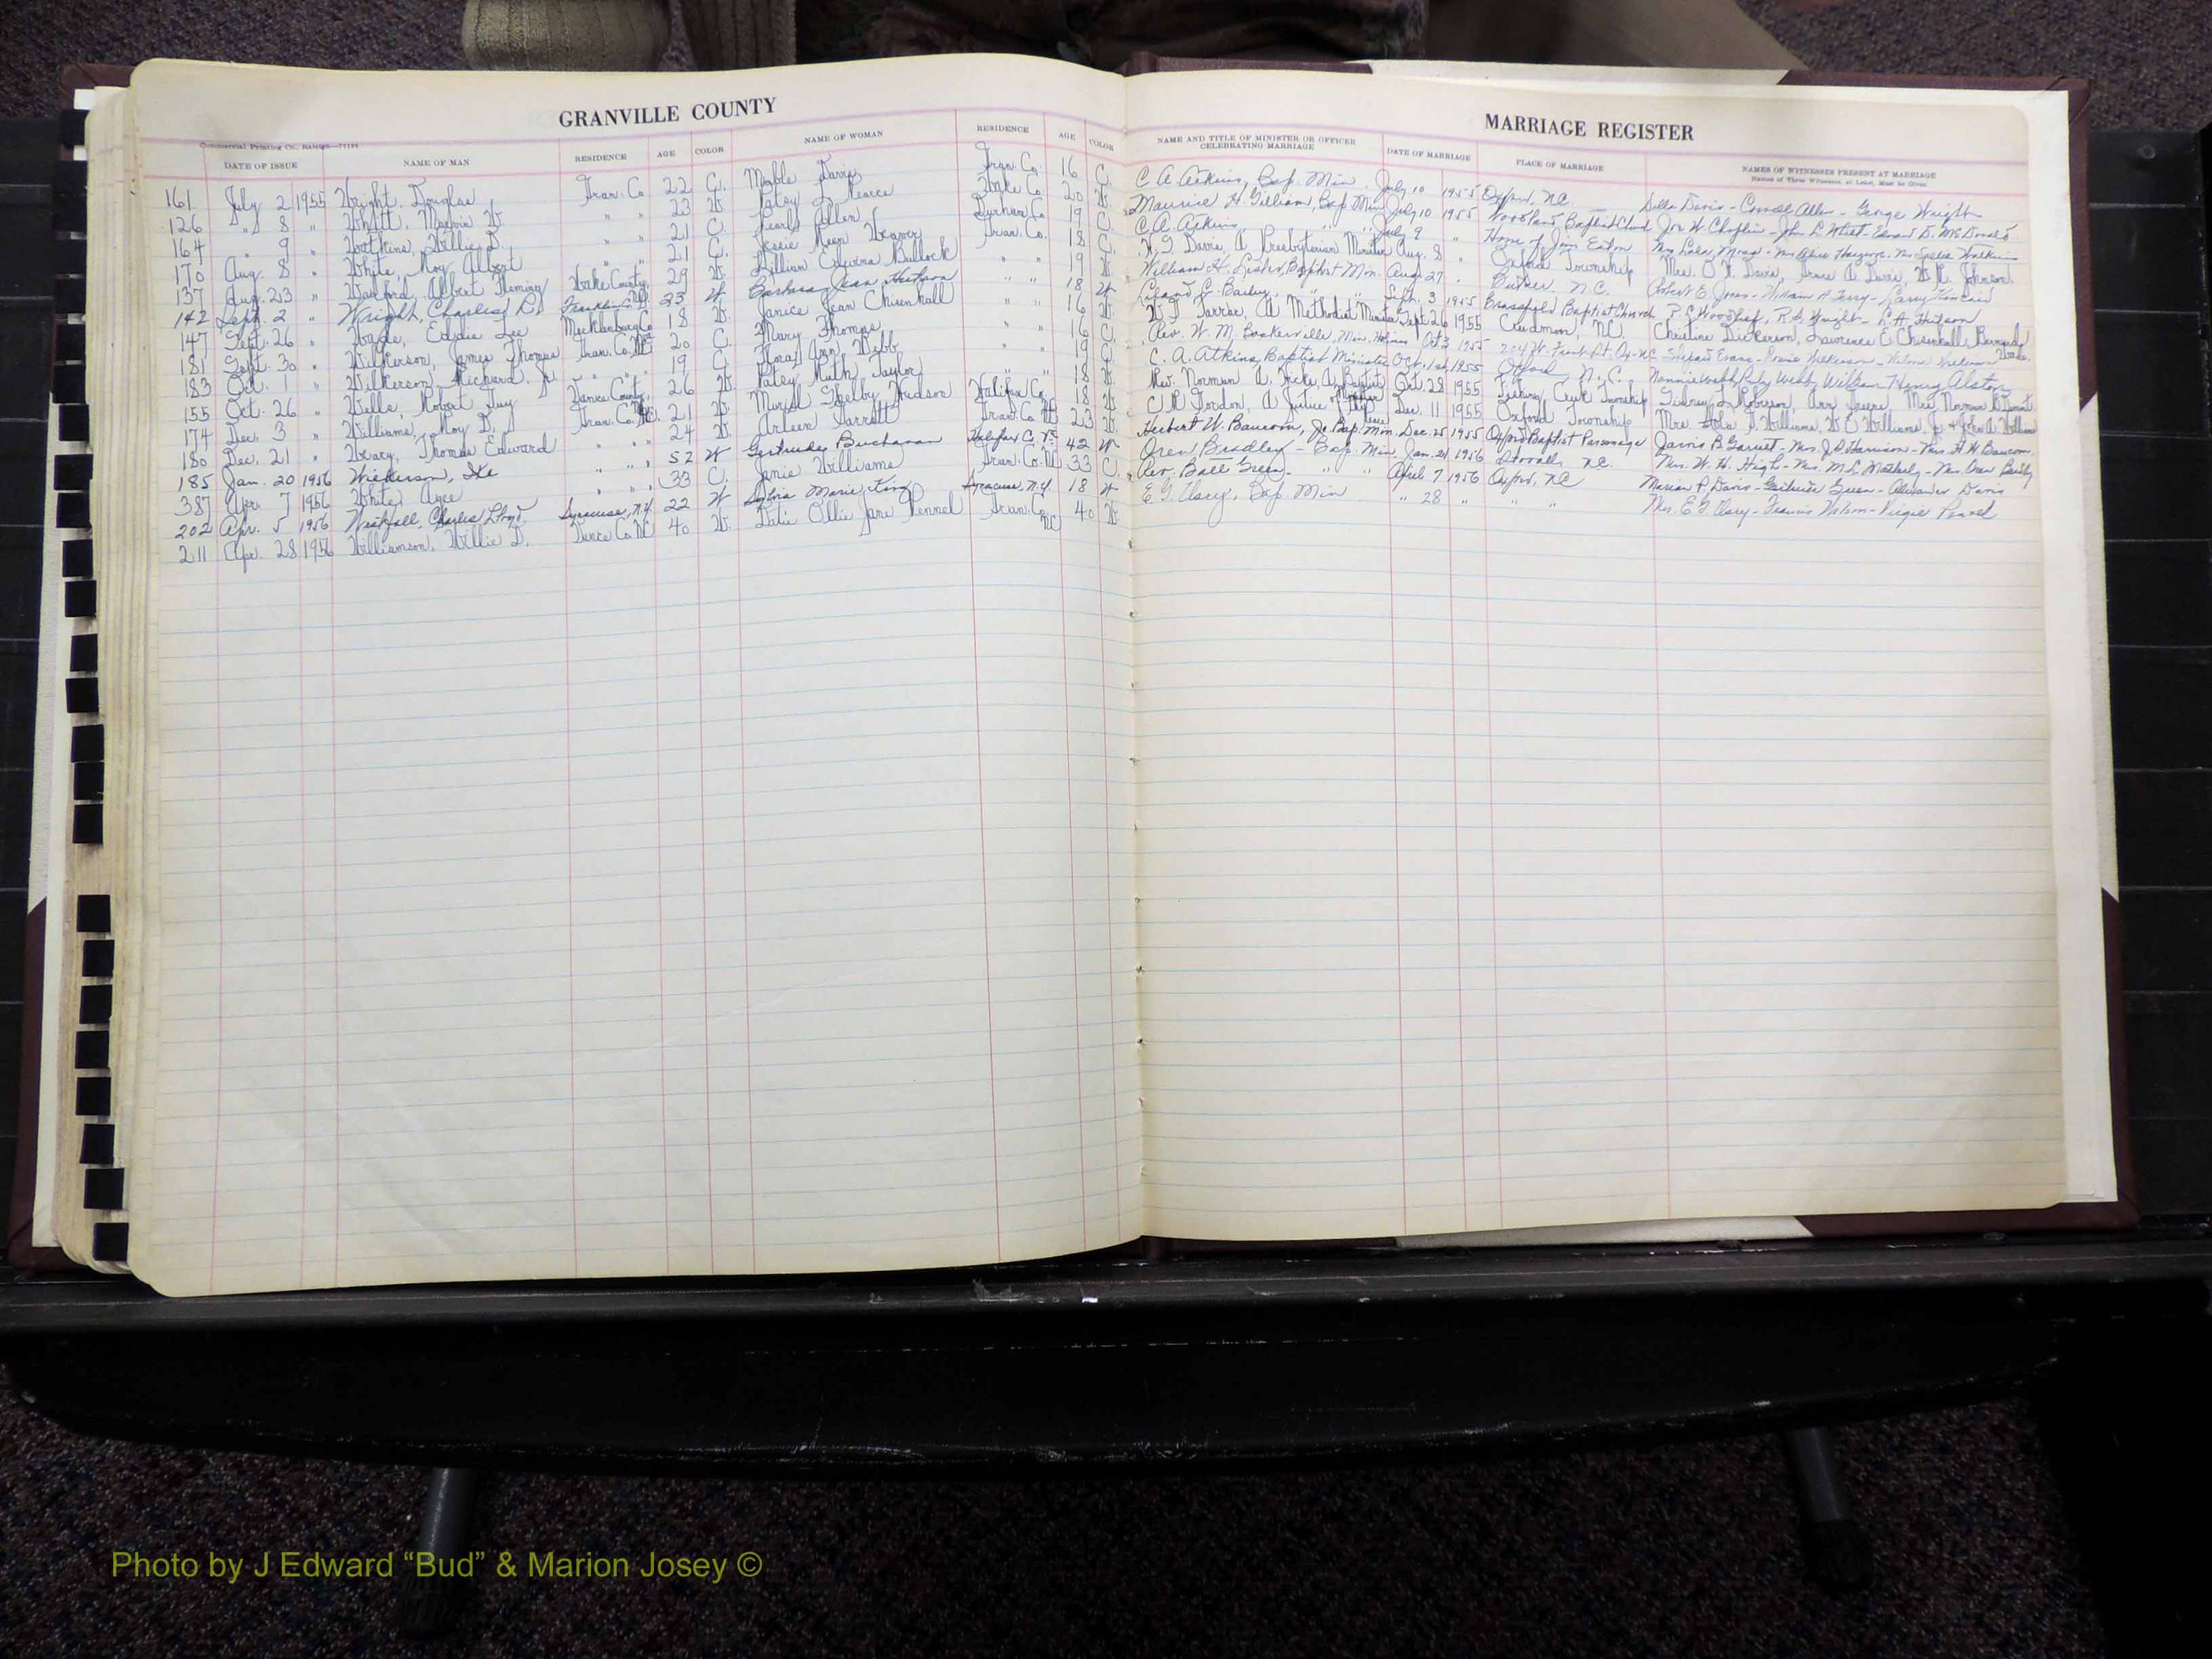 GRANVILLE COUNTY
MARRIAGE REGISTER
Commercial Printing Co., Raleigh—77194
DATE OF ISSUE NAME OF MAN RESIDENCE AGE COLOR NAME OF WOMAN RESIDENCE AGE COLOR NAME AND TITLE OF MINISTER OR OFFICER CELEBRATING MARRIAGE DATE OF MARRIAGE PLACE OF MARRIAGE NAMES OF WITNESSES PRESENT AT MARRIAGE
Names of Three Witnesses, at Least, Must be Given
161 July 2 1955 Wright, Douglas Gran. Co 22 C. Mable Davis Gran. Co. 16 C. C. A. Atkins, Bap. Min. July 10 1955 Oxford, N.C. Della Davis - Allen - George Wright
126 " 8 " Whitt, Marvin W " " 23 W. Patsy L. Pearce Wake Co. 20 W. Maurice H. Gilliam, Bap Min July 10 1955 Woodland Baptist Church Joe W. Champion - John L. Whitt - Edward D. McDonald
164 " 9 " Watkins, Willie D. " " 21 C. Pearl Allen Durham Co. 19 C. C. A. Atkins, " " July 9 " Home of Jim Eaton
170 Aug. 8 " White, Roy Albert " " 21 C. Jessie Weaver Gran. Co. 18 C. Davis, A Presbyterian Minister Aug. 8 " Oxford Township Mrs. O. W. Davis, Davis, Johnson
137 Aug. 23 " Albert Fleming Wake County 29 W. Lillian Edwina Bullock " " 19 W. William H. Lester, Baptist Min. Aug 27 " Butner, N.C. Robert E. Jones - William A. Terry - Larry Kincaid
142 Sept. 2 " Wright, Charles R. Franklin Co. 23 W Barbara Jean Hutson " " 18 W Bailey, " " Sept. 3 1955 Brassfield Baptist Church P. C. Woodlief, R. L. Wright - L. A. Hutson
147 Sept. 26 " Wade, Eddie Lee Mecklenburg Co 18 W. Janice Jean Chisenhall " " 16 W. Farrar, A Methodist Minister Sept 26 1955 Creedmoor, N.C. Christine Dickerson, Lawrence E Chisenhall, Wade
181 Sept. 30 " Wilkerson, James Thomas Gran. Co. NC 20 C. Mary Thomas " " 16 C. Rev. W. M. Baskerville, Min. Holiness Oct 3 1955 204 W. Front St. Ox-NC Evans - Wilkerson - Wilkerson
183 Oct. 1 " Wilkerson, Richard, Jr " " " 19 C. Flora Ann Webb " " 19 C. C. A. Atkins, Baptist Minister Oct. 1st 1955 Oxford, N. C. Nannie Webb, Ruby Webb, William Henry Alston
155 Oct. 26 " Wells, Robert Guy Vance County 26 W. Patsy Ruth Taylor " " 18 W. Rev. Norman A. Hicks, A Baptist Minister Oct. 28 1955 Fishing Creek Township Sidney Roberson, Ann Greene, Mrs Norman
174 Dec. 3 " Williams, Roy D. Gran. Co. NC. 21 W. Muriel Shelby Hudson Halifax Co. 18 W C. R. Gordon, A Justice of the Peace Dec. 11 1955 Oxford Township Mrs. Williams, W. E. Williams, Jr. & John A. Williams
180 Dec. 21 " Weary, Thomas Edward " " " 24 W. Arleen Garrett Gran. Co NC 23 W. Herbert W. Baucom, Jr. Bap. Min. Dec. 25 1955 Oxford Baptist Parsonage Jarvis B. Garrett - Mrs. J. D. Harrison - Mrs. H. W. Baucom
185 Jan. 20 1956 Wilkerson, Ike " " " 52 W Gertrude Buchanan Halifax C. Va 42 W Oren Bradley - Bap. Min. Jan. 21 1956 Stovall, N.C. Mrs. W. H. High - Mrs. M. L. - Mrs. Oren Bradley
387 Apr. 7 1956 White, " " " 33 C. Janie Williams Gran. Co. NC 33 C. Rev. Ball Green - " " April 7 1956 Oxford, NC Marian P. Davis - Gertrude Green - Alexander Davis
202 Apr. 5 1956 Westfall, Charles Lloyd Syracuse, N.Y. 22 W Sylvia Marie King Syracuse, N.Y. 18 W E. G. Usry, Bap Min " 28 " " Mrs. E. G. Usry - Francis Watson - Virgie Pennel
211 Apr. 28 1956 Williamson, Willie D. Vance Co. NC 40 W. Katie Ollie Jane Pennel Gran. Co. NC 40 W
Photo by J Edward “Bud” & Marion Josey ©